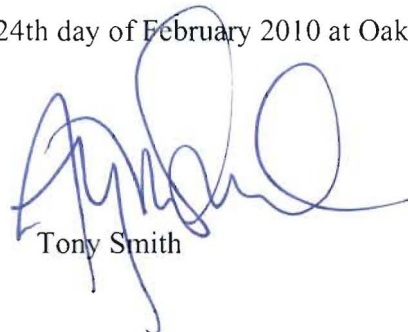 24th day of February 2010 at Oak
Tony Smith